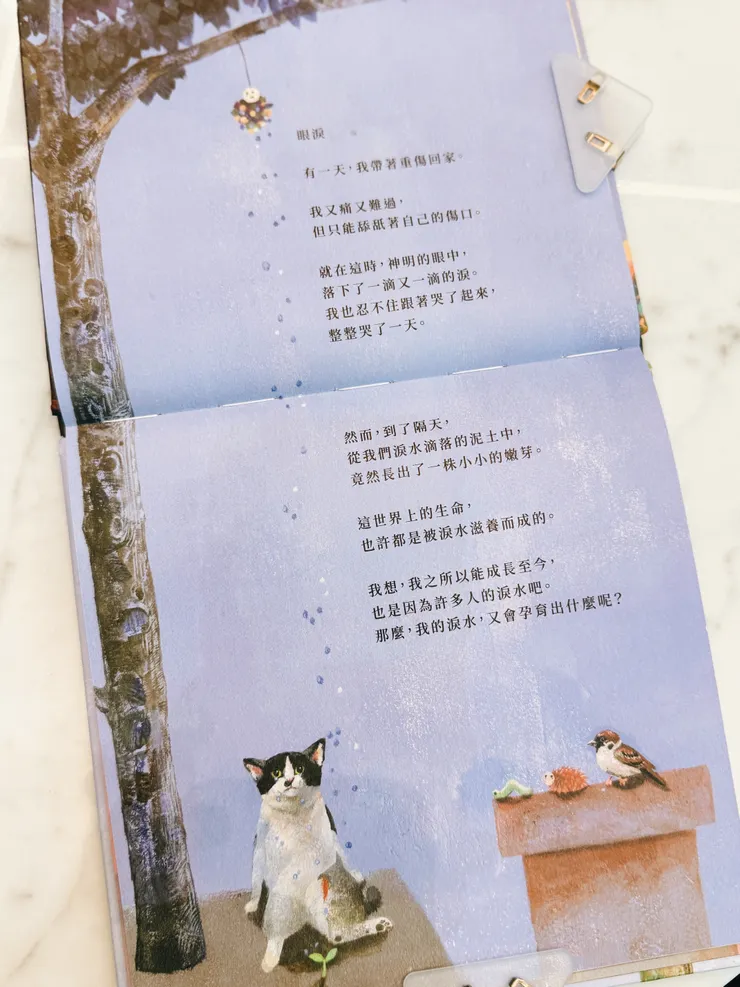 眼淚
有一天，我帶著重傷回家。
我又痛又難過，
但只能舔舐著自己的傷口。
就在這時，神明的眼中，
落下了一滴又一滴的淚。
我也忍不住跟著哭了起來，
整整哭了一天。
然而，到了隔天，
從我們淚水滴落的泥土中，
竟然長出了一株小小的嫩芽。
這世界上的生命，
也許都是被淚水滋養而成的。
我想，我之所以能成長至今，
也是因為許多人的淚水吧。
那麼，我的淚水，又會孕育出什麼呢？